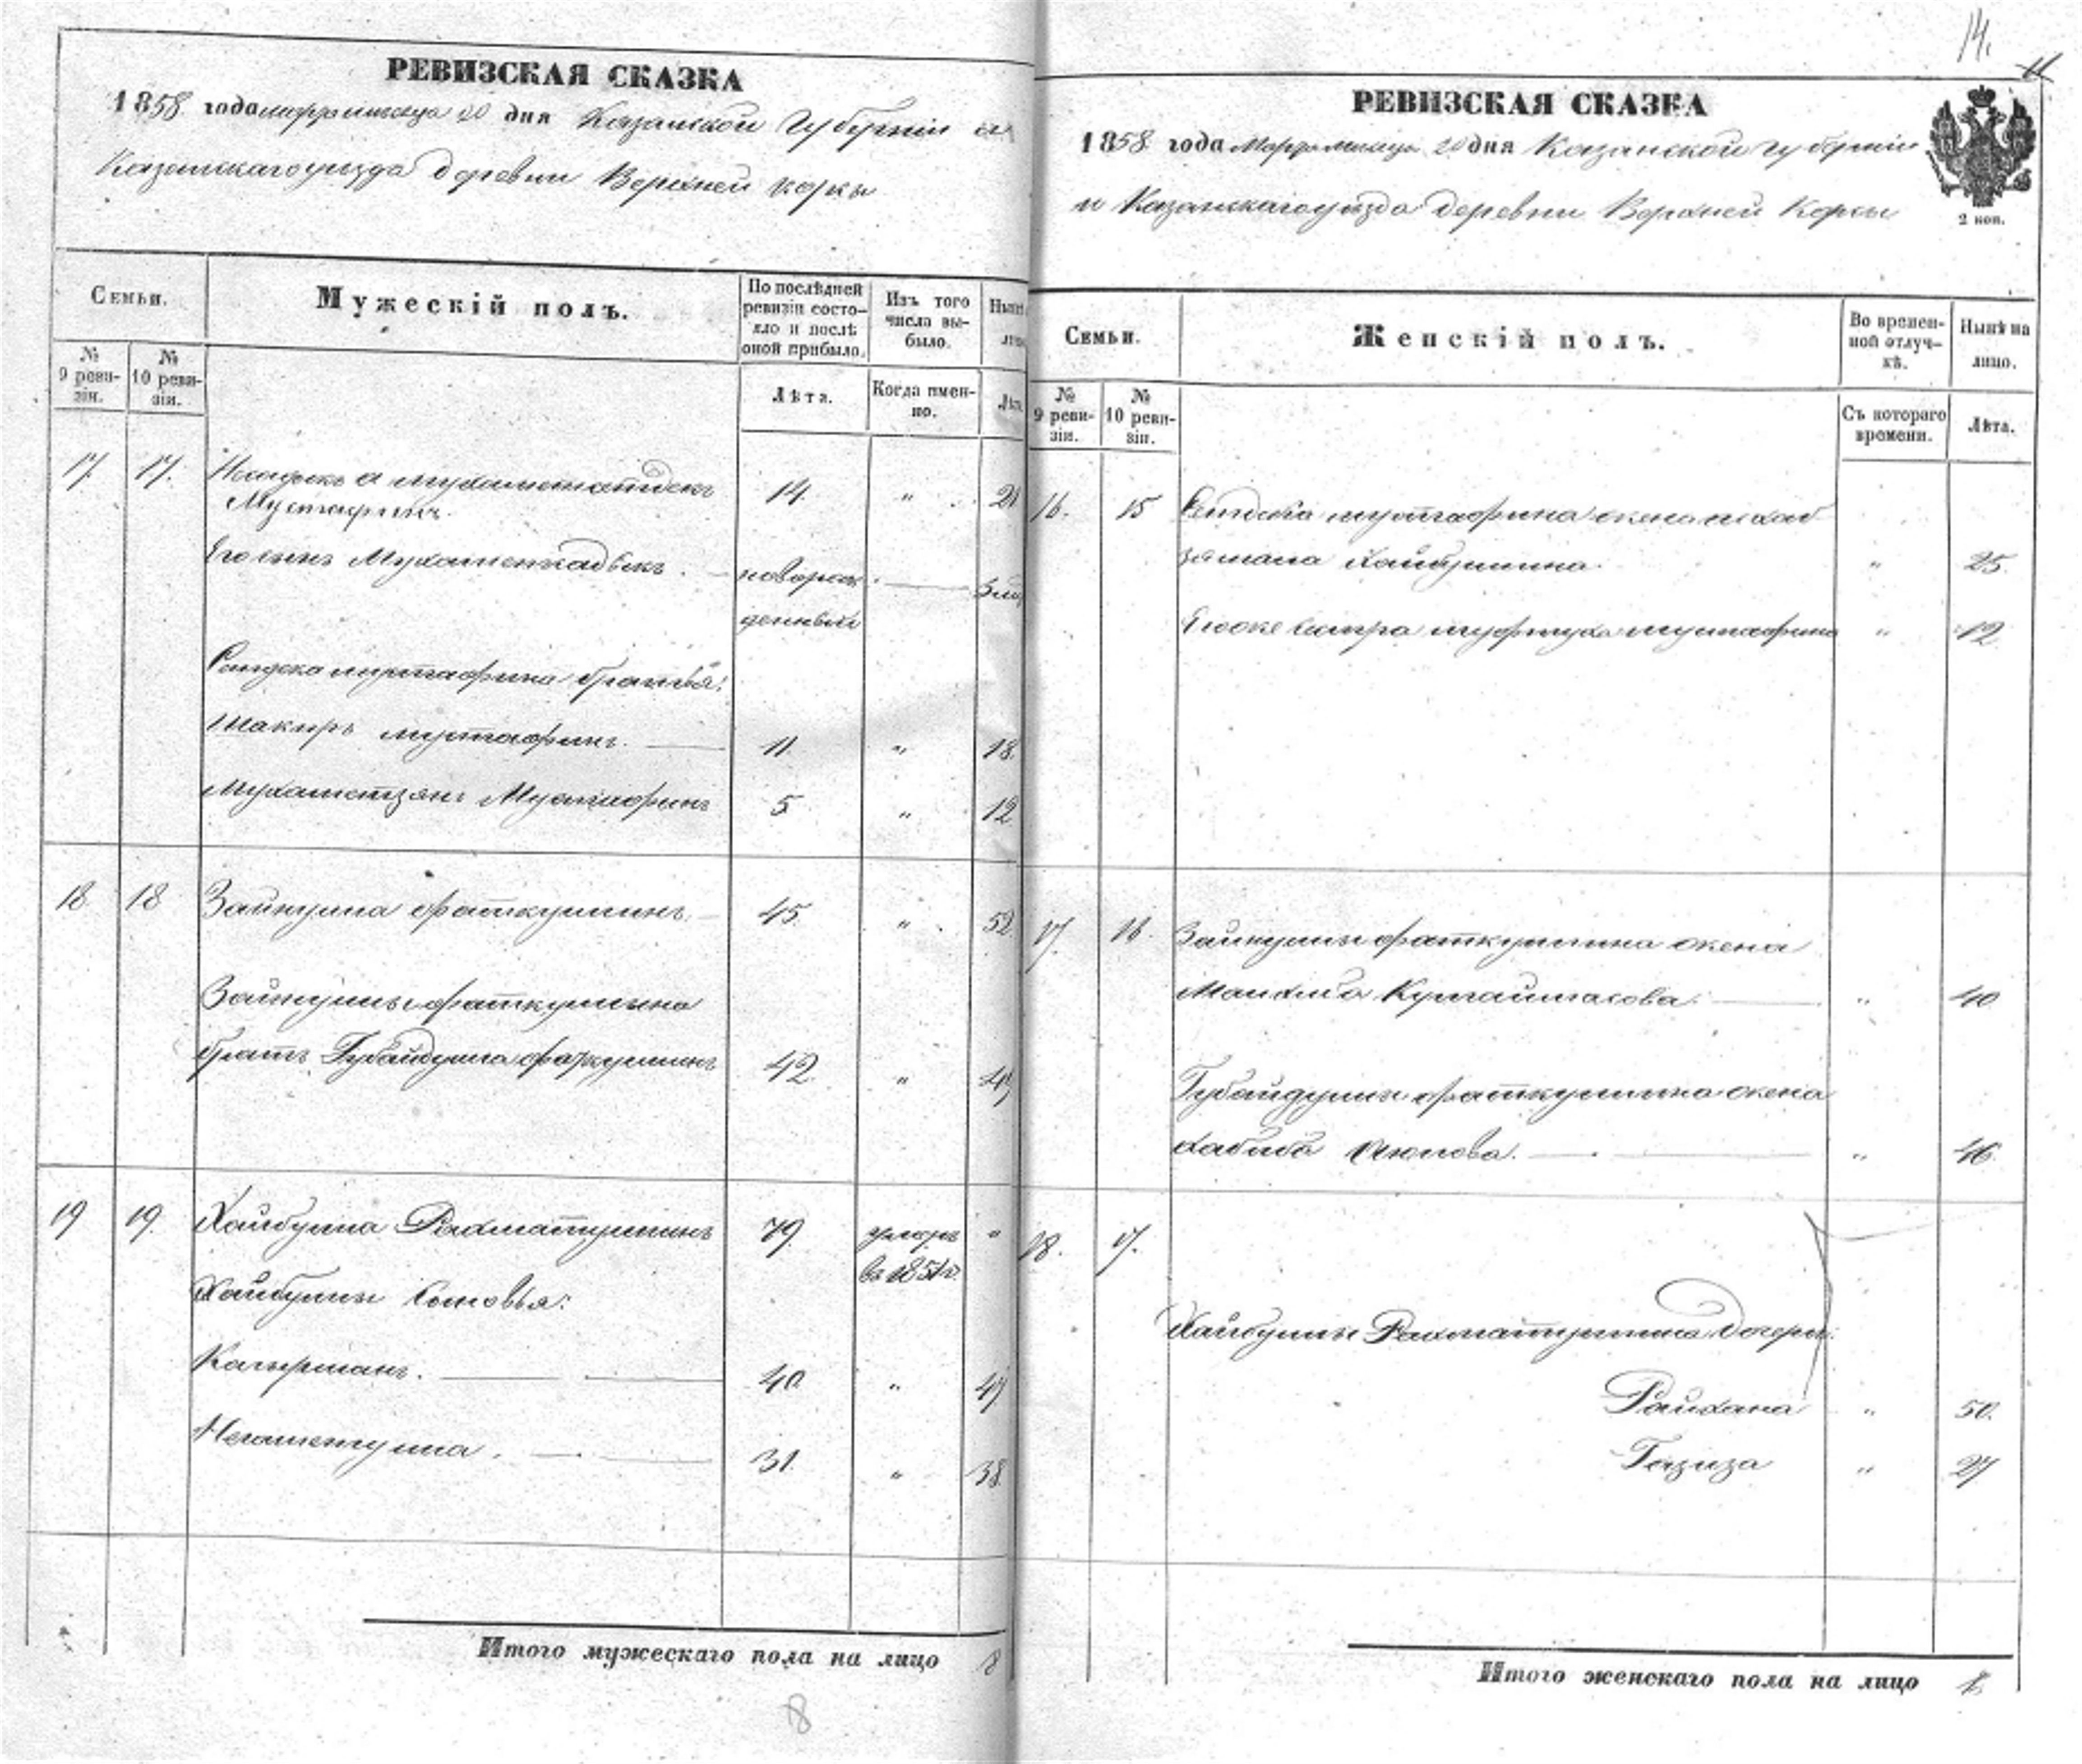 РЕВИЗСКАЯ СКАЗКА
1858 года марта месяца 20 дня Казанской Губернии и
Казанскаго уезда деревни Верхней Корсы
Семьи.
Мужескій полъ.
По послѣдней ревизіи состояло и послѣ оной прибыло.
Изъ того числа выбыло.
№ 9 ревизіи.
№ 10 ревизіи.
Лѣта.
Когда именно.
Лѣта
17. 17. Исхадыкъ а Мухаметсадыкъ 14. " 21
Мустафинъ.
Его сынъ Мухаметкадыкъ. новорож-
денный
Сегодска мустафина братья:
Шакиръ мустафинъ. 11. " 18.
Мухаметзянъ Мустафинъ 5. " 12
18. 18 Зайнулла фаткуллинъ. 45. " 52.
Зайнуллы фаткуллина
братъ Губайдулла фаткуллинъ 42. " 49
19 19. Хайбулла Рахматуллинъ 79. умеръ "
въ 1851 г.
Хайбуллы Сыновья:
Кагирманъ. 40 " 47
Негаметулла. 31. " 38.
Итого мужескаго пола на лицо 8
8
14.
РЕВИЗСКАЯ СКАЗКА
1858 года Марта месяца 20 дня Казанской губернии
и Казанскаго уезда деревни Верхней Корсы
2 коп.
Семьи.
Женскій полъ.
Во временной отлучкѣ.
Нынѣ на лицо.
№ 9 ревизіи.
№ 10 ревизіи.
Съ котораго времени.
Лѣта.
16. 15 мустафина жена
Хайбуллина. " 25.
Егоже сестра мустафина " 12.
17. 16. Зайнуллы фаткуллина жена
Кутлаймасова. " 40
Губайдуллы фаткуллина жена
Хабиба Аюпова. " 46.
18. 17.
Хайбуллы Рахматуллина дочери:
Райхана " 50.
Газиза " 27
Итого женскаго пола на лицо